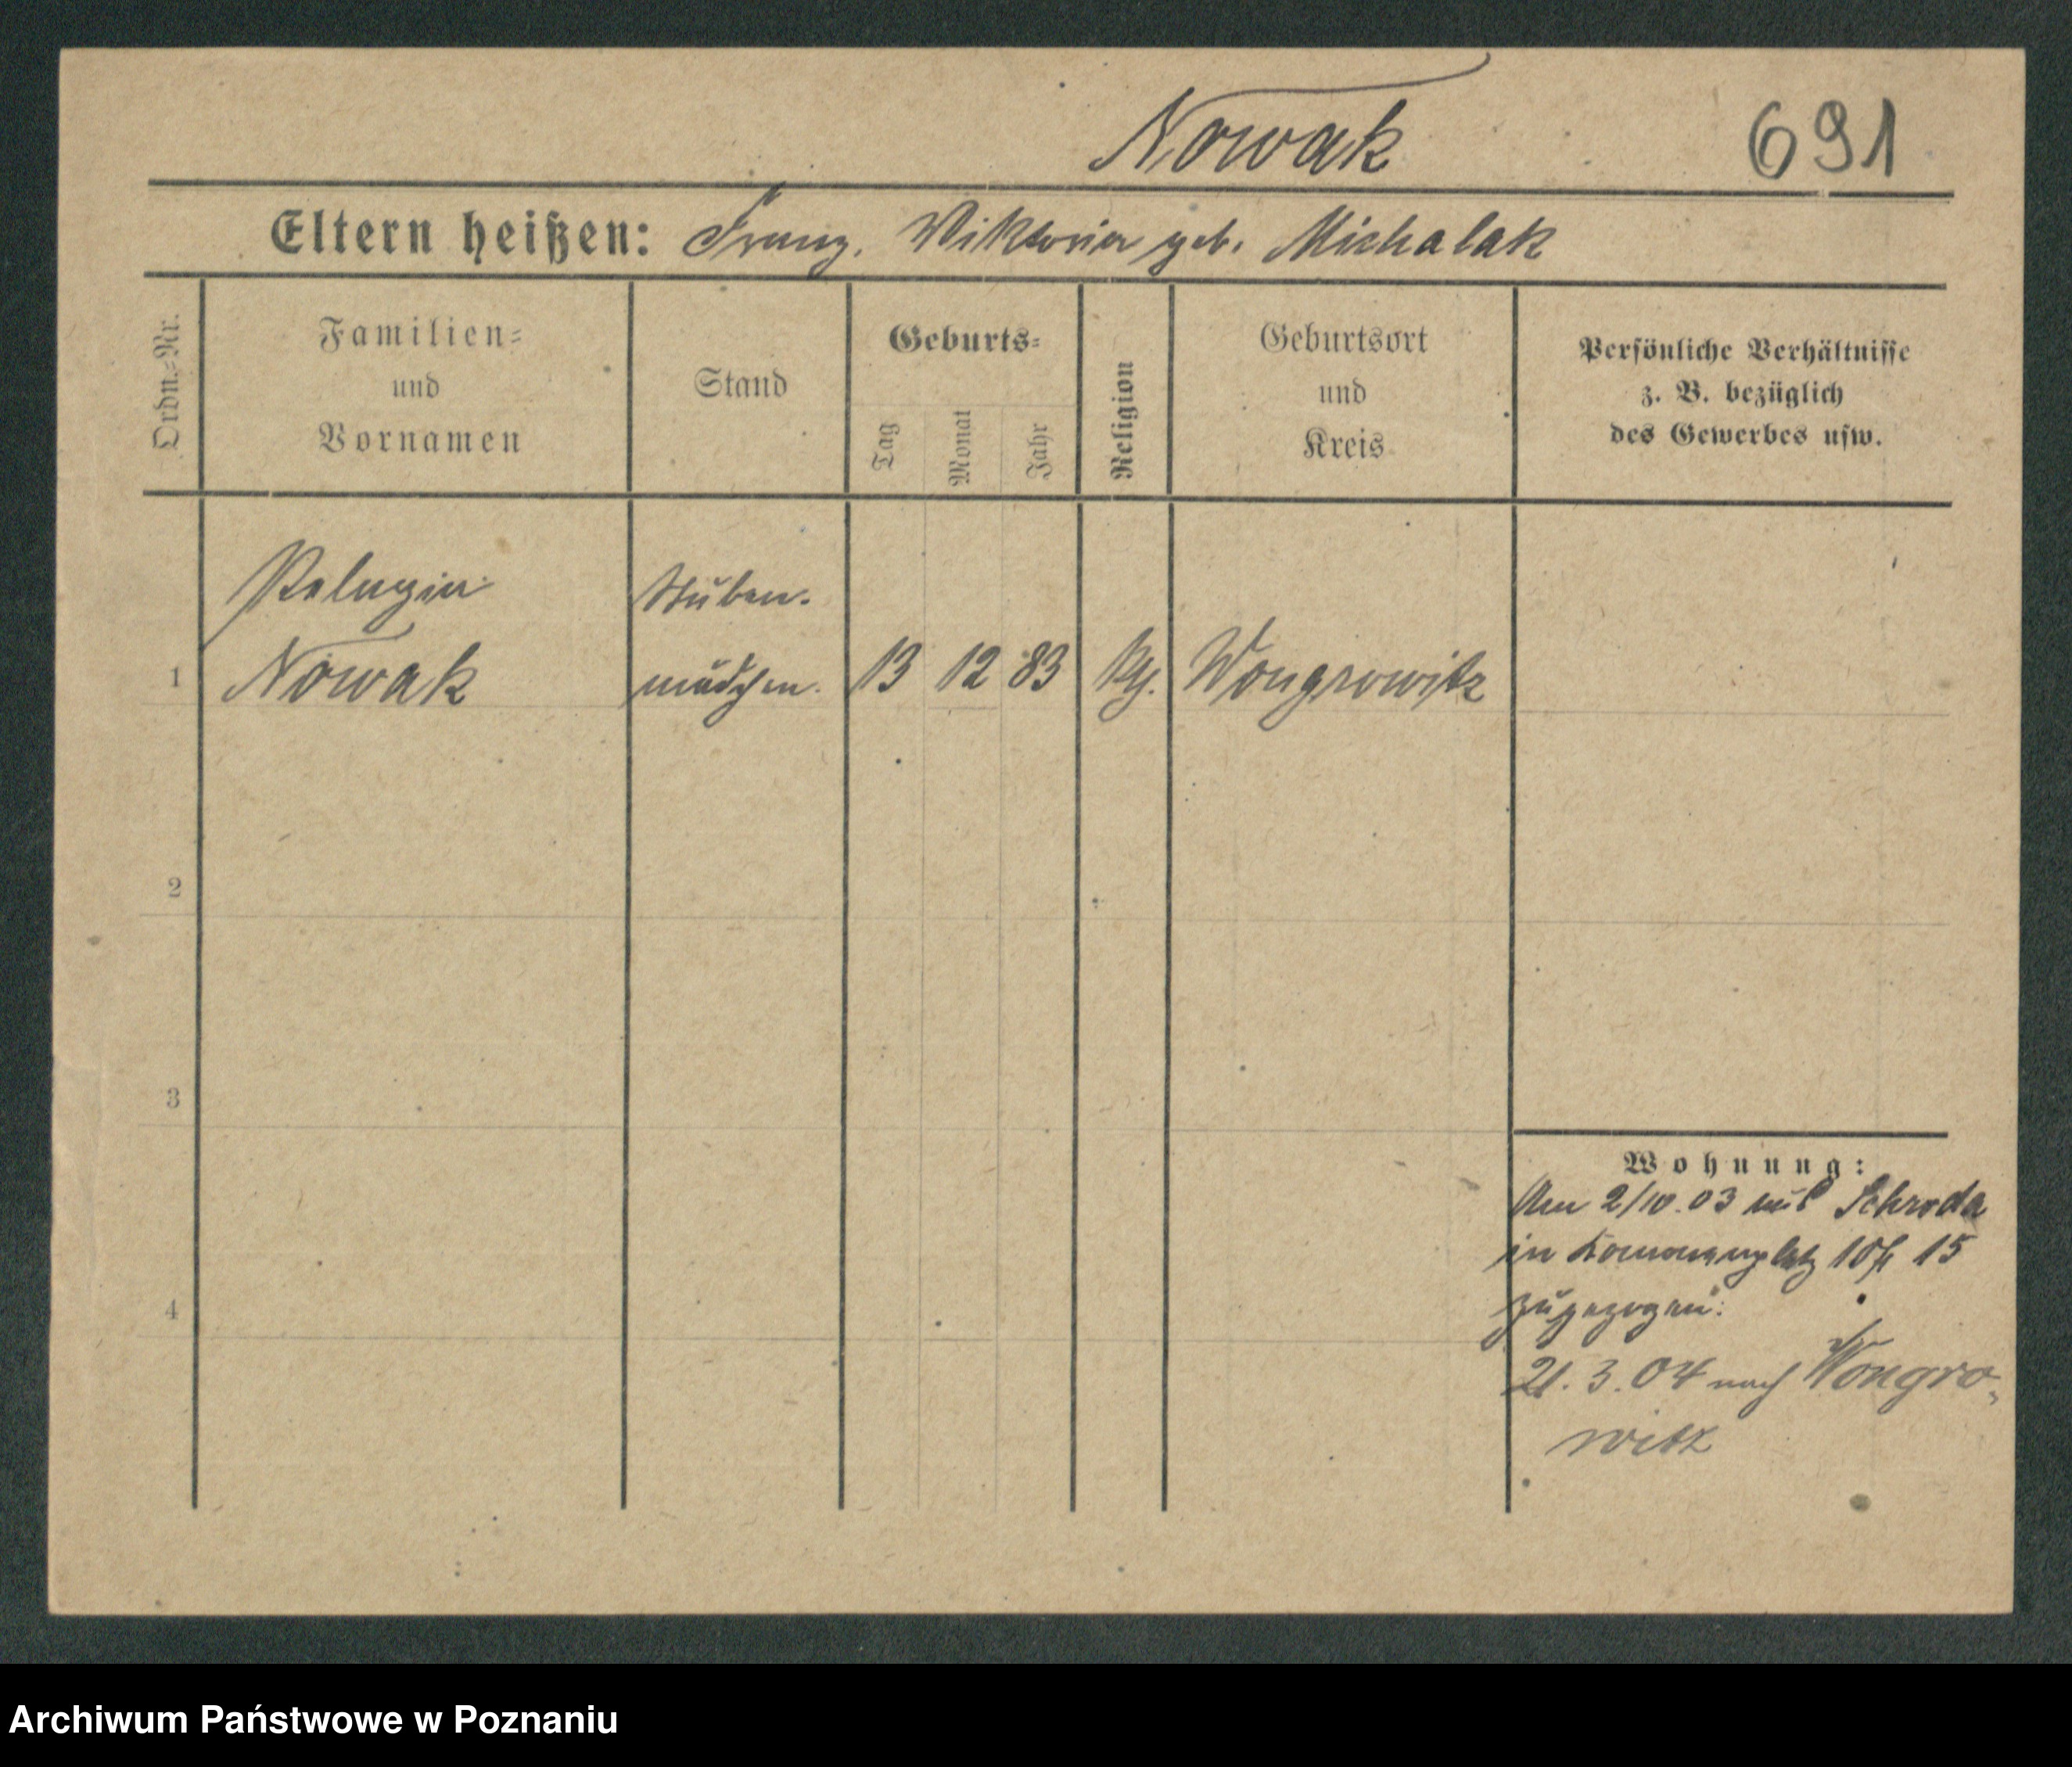 Nowak 691
Eltern heißen: Franz, Viktoria geb. Michalak
Ordn.=Nr.
Familien=
und
Vornamen
Stand
Geburts=
Tag
Monat
Jahr
Religion
Geburtsort
und
Kreis
Persönliche Verhältnisse
z. B. bezüglich
des Gewerbes usw.
Pelagia Stuben.
1 Nowak mädchen. 13 12 83 Wongrowitz
2
3
4
Wohnung:
Am 2/10.03 aus Schroda
in 15
zugezogen.
21.3.04 nach Wongro-
witz
Archiwum Państwowe w Poznaniu